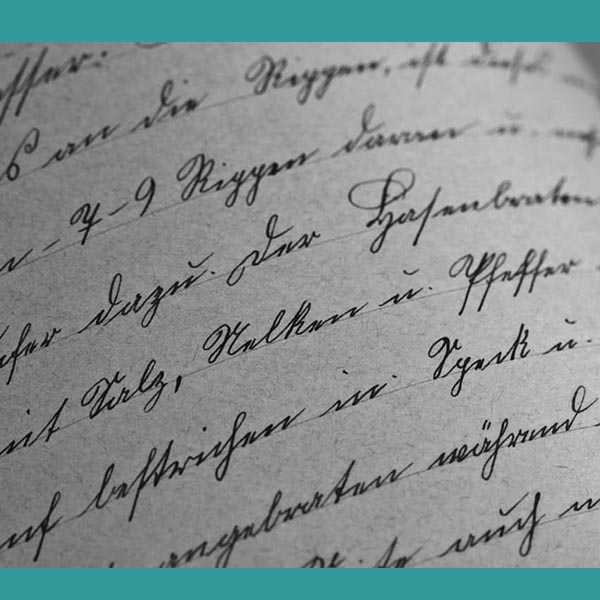 an die Rippen, ist dieses
- 7 - 9 Rippen daran u.
dazu. Der Hasenbraten
mit Salz, Nelken u. Pfeffer
bestrichen in Speck u.
angebraten während
auch